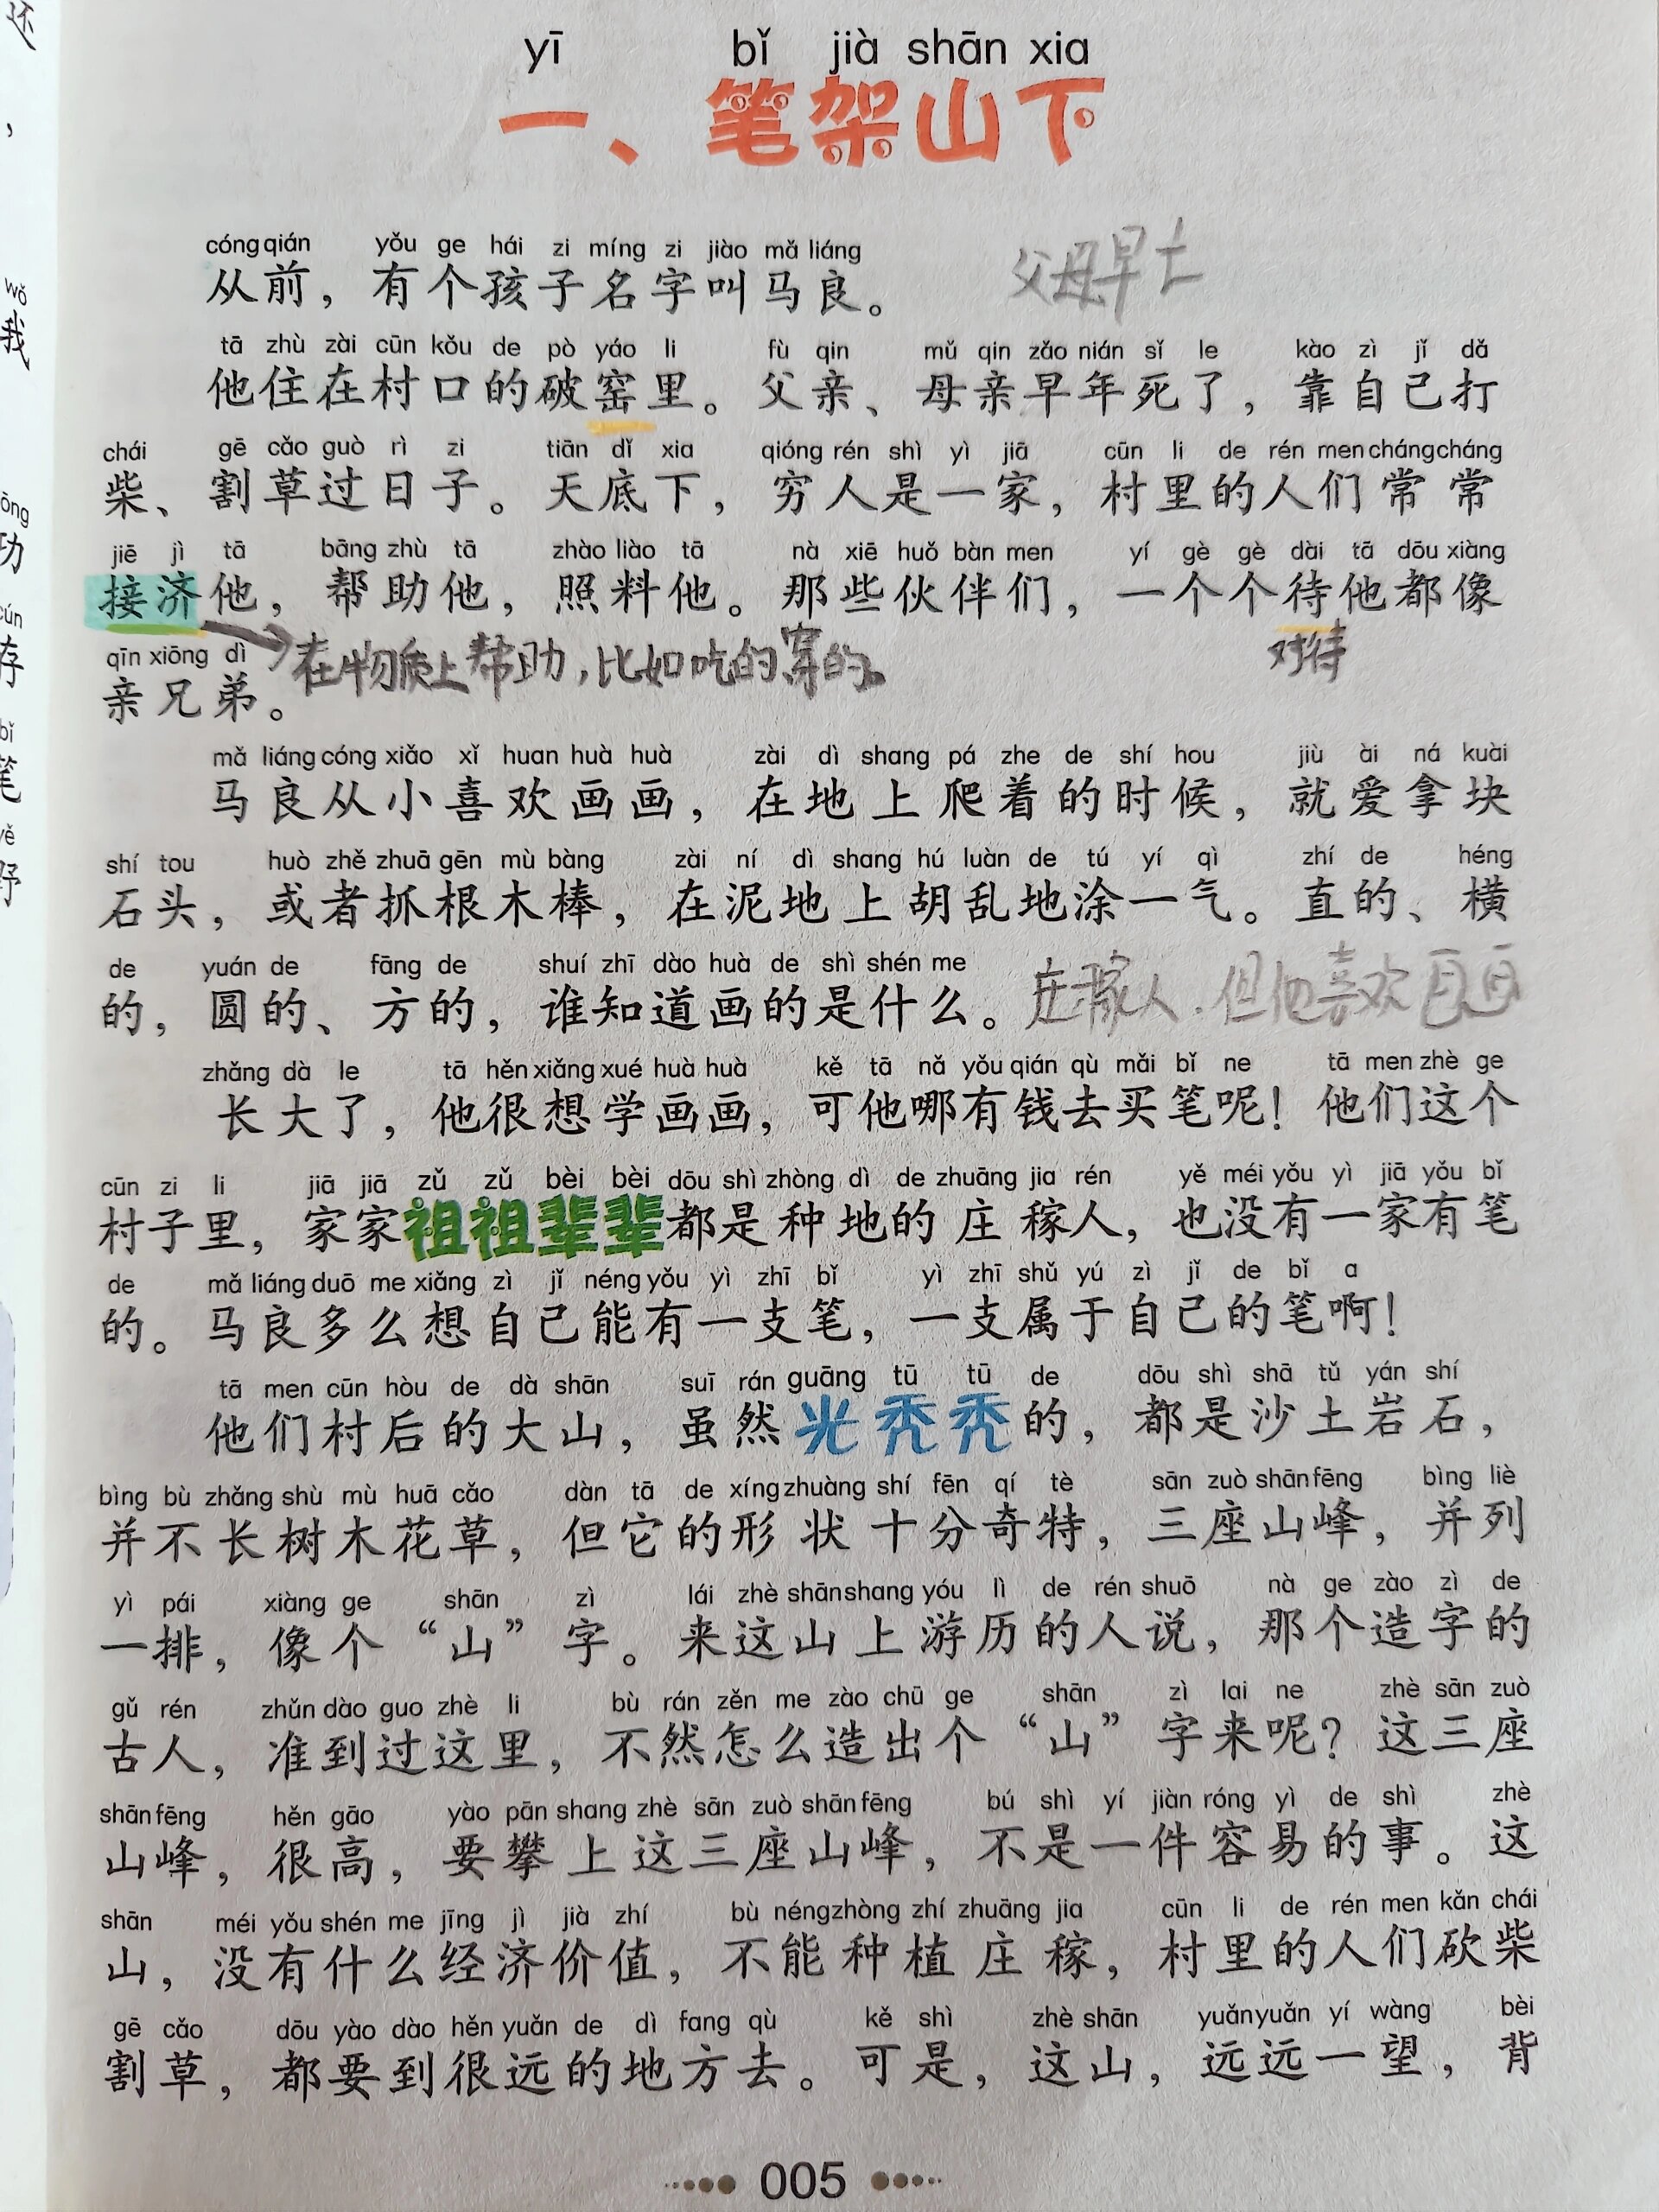 yī bǐ jià shān xia
一、笔架山下
cóng qián yǒu ge hái zi míng zi jiào mǎ liáng
从前，有个孩子名字叫马良。
父母早亡
tā zhù zài cūn kǒu de pò yáo li fù qin mǔ qin zǎo nián sǐ le kào zì jǐ dǎ
他住在村口的破窑里。父亲、母亲早年死了，靠自己打
chái gē cǎo guò rì zi tiān dǐ xia qióng rén shì yì jiā cūn li de rén men cháng cháng
柴、割草过日子。天底下，穷人是一家，村里的人们常常
jiē jì tā bāng zhù tā zhào liào tā nà xiē huǒ bàn men yí gè gè dài tā dōu xiàng
接济他，帮助他，照料他。那些伙伴们，一个个待他都像
在物质上帮助，比如吃的穿的。
对待
qīn xiōng dì
亲兄弟。
mǎ liáng cóng xiǎo xǐ huan huà huà zài dì shang pá zhe de shí hou jiù ài ná kuài
马良从小喜欢画画，在地上爬着的时候，就爱拿块
shí tou huò zhě zhuā gēn mù bàng zài ní dì shang hú luàn de tú yí qì zhí de héng
石头，或者抓根木棒，在泥地上胡乱地涂一气。直的、横
de yuán de fāng de shuí zhī dào huà de shì shén me
的，圆的、方的，谁知道画的是什么。
庄稼人，但他喜欢画画
zhǎng dà le tā hěn xiǎng xué huà huà kě tā nǎ yǒu qián qù mǎi bǐ ne tā men zhè ge
长大了，他很想学画画，可他哪有钱去买笔呢！他们这个
cūn zi li jiā jiā zǔ zǔ bèi bèi dōu shì zhòng dì de zhuāng jia rén yě méi yǒu yì jiā yǒu bǐ
村子里，家家祖祖辈辈都是种地的庄稼人，也没有一家有笔
de mǎ liáng duō me xiǎng zì jǐ néng yǒu yì zhī bǐ yì zhī shǔ yú zì jǐ de bǐ a
的。马良多么想自己能有一支笔，一支属于自己的笔啊！
tā men cūn hòu de dà shān suī rán guāng tū tū de dōu shì shā tǔ yán shí
他们村后的大山，虽然光秃秃的，都是沙土岩石，
bìng bù zhǎng shù mù huā cǎo dàn tā de xíng zhuàng shí fēn qí tè sān zuò shān fēng bìng liè
并不长树木花草，但它的形状十分奇特，三座山峰，并列
yì pái xiàng ge shān zì lái zhè shān shang yóu lì de rén shuō nà ge zào zì de
一排，像个“山”字。来这山上游历的人说，那个造字的
gǔ rén zhǔn dào guo zhè li bù rán zěn me zào chū ge shān zì lai ne zhè sān zuò
古人，准到过这里，不然怎么造出个“山”字来呢？这三座
shān fēng hěn gāo yào pān shang zhè sān zuò shān fēng bú shì yí jiàn róng yì de shì zhè
山峰，很高，要攀上这三座山峰，不是一件容易的事。这
shān méi yǒu shén me jīng jì jià zhí bù néng zhòng zhí zhuāng jia cūn li de rén men kǎn chái
山，没有什么经济价值，不能种植庄稼，村里的人们砍柴
gē cǎo dōu yào dào hěn yuǎn de dì fang qù kě shì zhè shān yuǎn yuǎn yí wàng bèi
割草，都要到很远的地方去。可是，这山，远远一望，背
005
wǒ
我